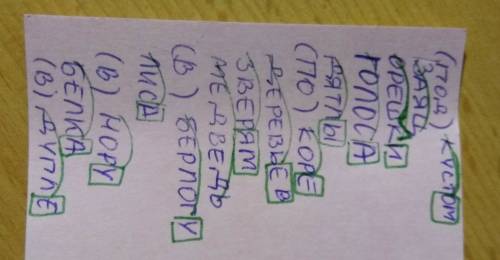 (ПОД) КУСТОМ
ЗАЯЦ
ОРЕШКИ
ГОЛОСА
ДЯТЛЫ
(ПО) КОРЕ
ДЕРЕВЬЕВ
ЗВЕРАМ
МЕДВЕДЬ
(В) БЕРЛОГУ
ЛИСА
(В) НОРУ
БЕЛКА
(В) ДУПЛЕ